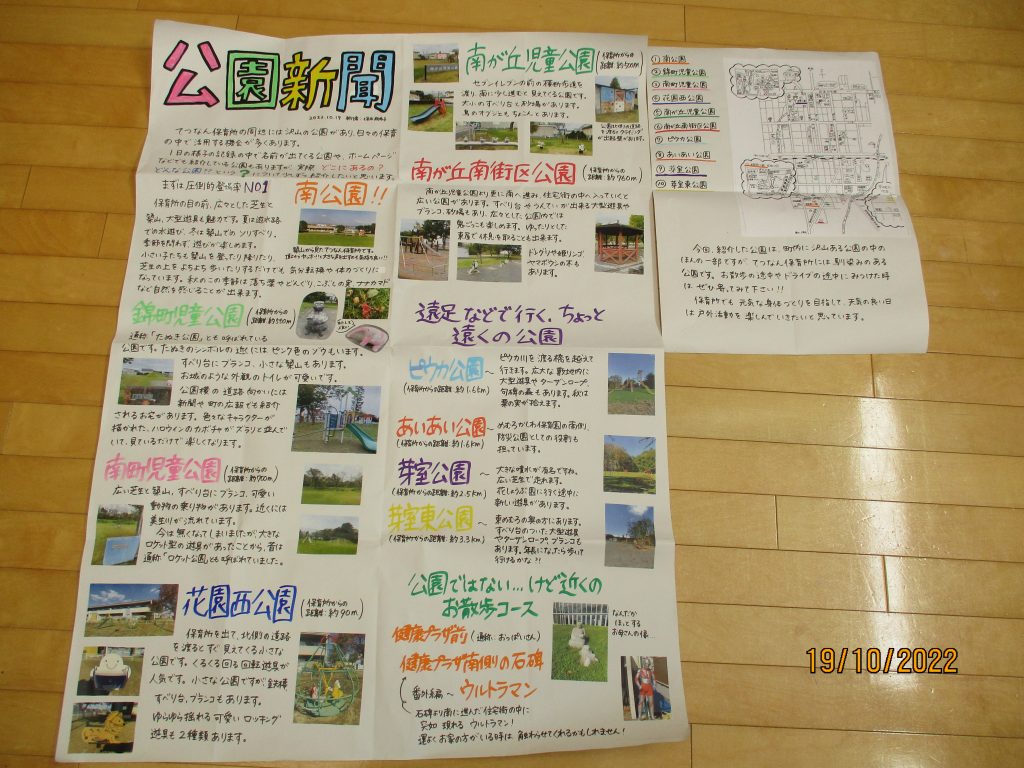 公園新聞
てつなん保育所の周辺には沢山の公園があり、日々の保育
の中で活用する機会が多くあります。
1日の様子の記録の中で名前が出てくる公園や、ホームページ
などでも紹介している公園もありますが実際、どこにあるの？
どんな公園!?
まずは圧倒的登場率 NO1
南公園!!
保育所の目の前、広々とした芝生と
築山、大型遊具も魅力です。夏は遊水路
での水遊び、冬は築山でのソリすべり、
季節を問わず、遊びが楽しめます。
小さい子たちも築山を登ったり降りたり、
芝生の上をよちよち歩いたりするだけでも、気分転換や体力づくりに
なっています。秋のこの季節は落ち葉やどんぐり、こぶしの実、ナナカマド
など自然を感じることが出来ます。
錦町児童公園
(保育所からの
距離：約550m)
通称「たぬき公園」とも呼ばれている
公園です。たぬきのシンボルの近くにはピンク色のゾウもいます。
すべり台にブランコ、小さな築山もあります。
お城のような外観のトイレが可愛いです。
公園横の道路向かいには
新聞や町の広報でも紹介
されるお宅があります。色々なキャラクターが
描かれた、ハロウィンのカボチャがズラリと並んで
いて、見ているだけで楽しくなります。
南町児童公園
(保育所からの
距離：約700m)
広い芝生と築山、すべり台にブランコ、可愛い
動物の乗り物があります。近くには
美生川が流れています。
今は無くなってしまいましたが、大きな
ロケット型の遊具があったことから、昔は
通称「ロケット公園」とも呼ばれていました。
花園西公園
(保育所からの
距離：約90m)
保育所を出て、北側の道路
を渡るとすぐ見えてくる小さな
公園です。くるくる回る回転遊具が
人気です。小さな公園ですが鉄棒
すべり台、ブランコもあります。
ゆらゆら揺れる可愛いロッキング
遊具も2種類あります。
南が丘児童公園
(保育所からの
距離：約500m)
セブンイレブンの前の横断歩道を
渡り、南に少し進むと見えてくる公園です。
大小のすべり台とお砂場があります。
南が丘南街区公園
(保育所からの
距離：約760m)
南が丘児童公園より更に南へ進み、住宅街の中へ入っていくと
広い公園があります。すべり台やうんていが出来る大型遊具や
ブランコ、砂場もあり、広々とした公園内では
鬼ごっこも楽しめます。ゆったりとした
東屋で休息を取ることも出来ます。
ドングリや姫リンゴ、
ヤマボウシの木も
あります。
遠足などで行く、ちょっと
遠くの公園
ピウカ公園～
(保育所からの距離：約1.6km)
ピウカ川を渡る橋を越えて
行きます。広大な敷地内に
大型遊具やターザンロープ、
句碑の森もあります。秋は
栗の実が拾えます。
あいあい公園～
(保育所からの距離：約1.6km)
めむろかしわ保育園の南側。
防災公園としての役割も
担っています。
芽室公園～
(保育所からの距離：約2.5km)
大きな噴水が有名ですね。
広い芝生で走れます。
花しょうぶ園に行く途中に
新しい遊具があります。
芽室東公園～
(保育所からの距離：約3.3km)
東めむろの奥の方にあります。
すべり台のついた大型遊具
やターザンロープ、ブランコも
あります。年長になったら歩いて
行けるかな?!
公園ではない…けど近くの
お散歩コース
健康プラザ前
(通称、おっぱいさん)
なんだか
ほっとする
お母さんの像…
健康プラザ南側の石碑
番外編～ウルトラマン
石碑より南に進んだ住宅街の中に
突如現れるウルトラマン！
運よくお家の方がいる時は触わらせてくれるかもしれません！
① 南公園
② 錦町児童公園
③ 南町児童公園
④ 花園西公園
⑤ 南が丘児童公園
⑥ 南が丘南街区公園
⑦ ピウカ公園
⑧ あいあい公園
⑨ 芽室公園
⑩ 芽室東公園
今回、紹介した公園は、町内に沢山ある公園の中の
ほんの一部ですが、てつなん保育所には馴染みのある
公園です。お散歩の途中やドライブの途中にみつけた時
は、ぜひ寄ってみて下さい!!
保育所でも元気な身体づくりを目指して、天気の良い日
は戸外活動を楽しんでいきたいと思っています。
19/10/2022